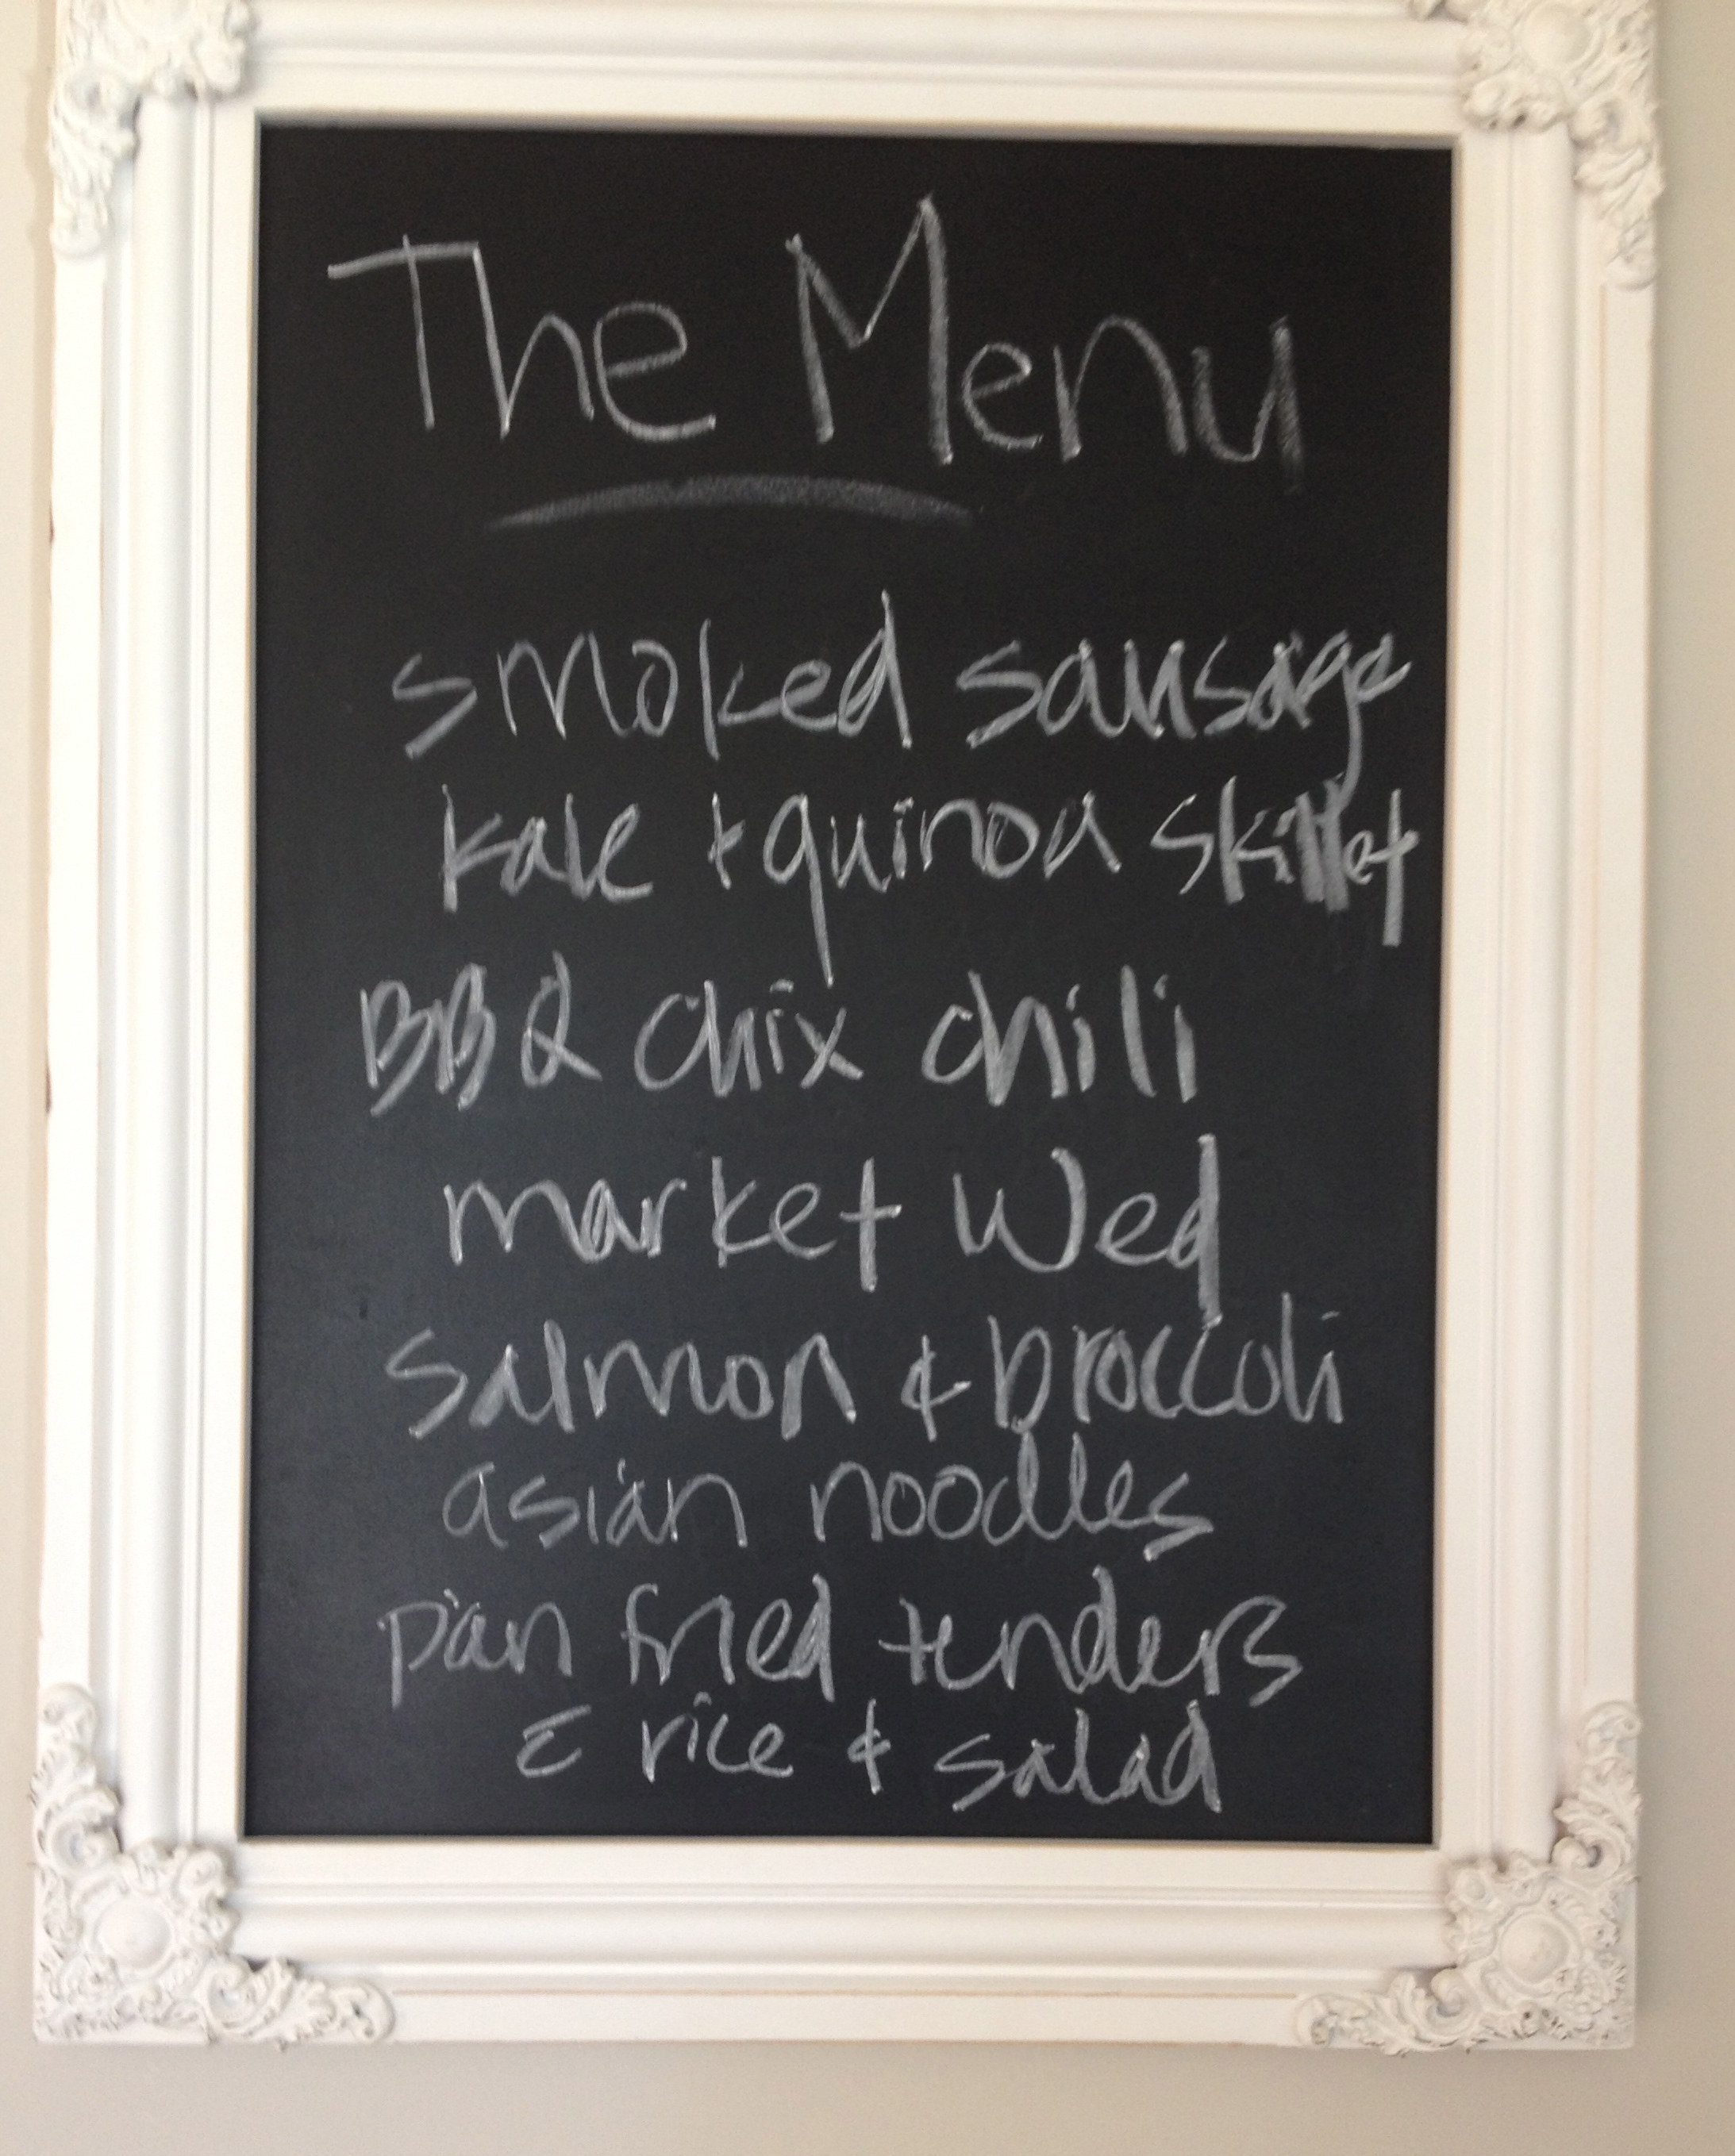 The Menu
smoked sausage
kale + quinoa skillet
BBQ chix chili
market Wed
salmon & broccoli
asian noodles
pan fried tenders
& rice & salad